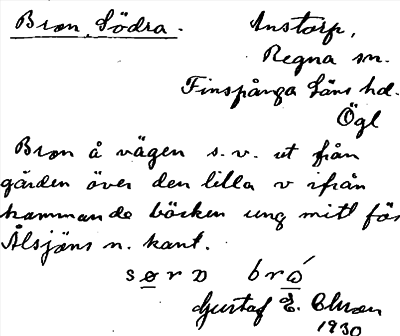 Bron, Södra.
Anstorp,
Regna sn.
Finspånga läns hd.
Ögl
Bron å vägen s.v. ut från
gården över den lilla v ifrån
kommande bäcken ung mitt för
Ålsjöns n. kant.
sørɒ bró
Gustaf E. Olsson
1930